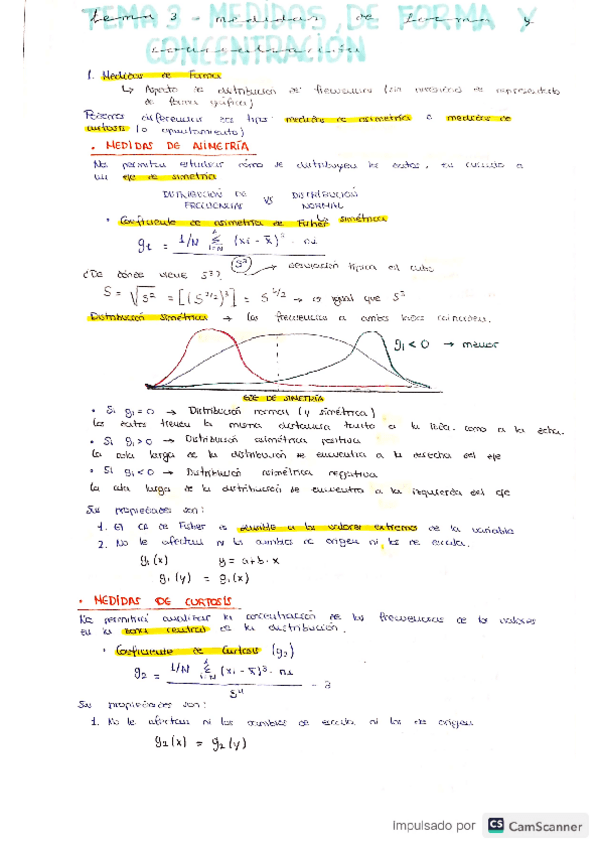 TEMA 3 - MEDIDAS DE FORMA Y
CONCENTRACIÓN
1. Medidas de Forma
↳ Aspecto de distribución de frecuencias (sin necesidad de representarlo
de forma gráfica)
Podemos diferenciar dos tipos: medidas de asimetría o medidas de
curtosis (o apuntamiento)
• MEDIDAS DE ASIMETRÍA
Nos permiten estudiar cómo se distribuyen los datos, en cuanto a
un eje de simetría
DISTRIBUCIÓN DE FRECUENCIAS VS DISTRIBUCIÓN NORMAL
↳ simétrica
• Coeficiente de asimetría de Fisher
g1 = 1/N Σ (xi - x̄)³ · ni
S³ → desviación típica al cubo
¿De dónde viene S³?
S = √S² = [(S^3/2)²] = S^3/2 → es igual que S³
Distribución simétrica → las frecuencias a ambos lados coinciden.
g1 < 0 → menor
EJE DE SIMETRÍA
• Si g1 = 0 → Distribución normal (y simétrica)
Los datos tienen la misma distancia tanto a la izda. como a la dcha.
• Si g1 > 0 → Distribución asimétrica positiva
La cola larga de la distribución se encuentra a la derecha del eje
• Si g1 < 0 → Distribución asimétrica negativa
La cola larga de la distribución se encuentra a la izquierda del eje
Sus propiedades son:
1. El CA de Fisher es sensible a los valores extremos de la variable
2. No le afectan ni los cambios de origen ni los de escala.
g1 (x) y = a + b · x
g1 (y) = g1 (x)
• MEDIDAS DE CURTOSIS
Nos permitirá analizar la concentración de las frecuencias de los valores
en la zona central de la distribución.
• Coeficiente de Curtosis (g2)
g2 = 1/N Σ (xi - x̄)³ · ni
S⁴ - 3
Sus propiedades son:
1. No le afectan ni los cambios de escala ni los de origen
g2 (x) = g2 (y)
Impulsado por CS CamScanner